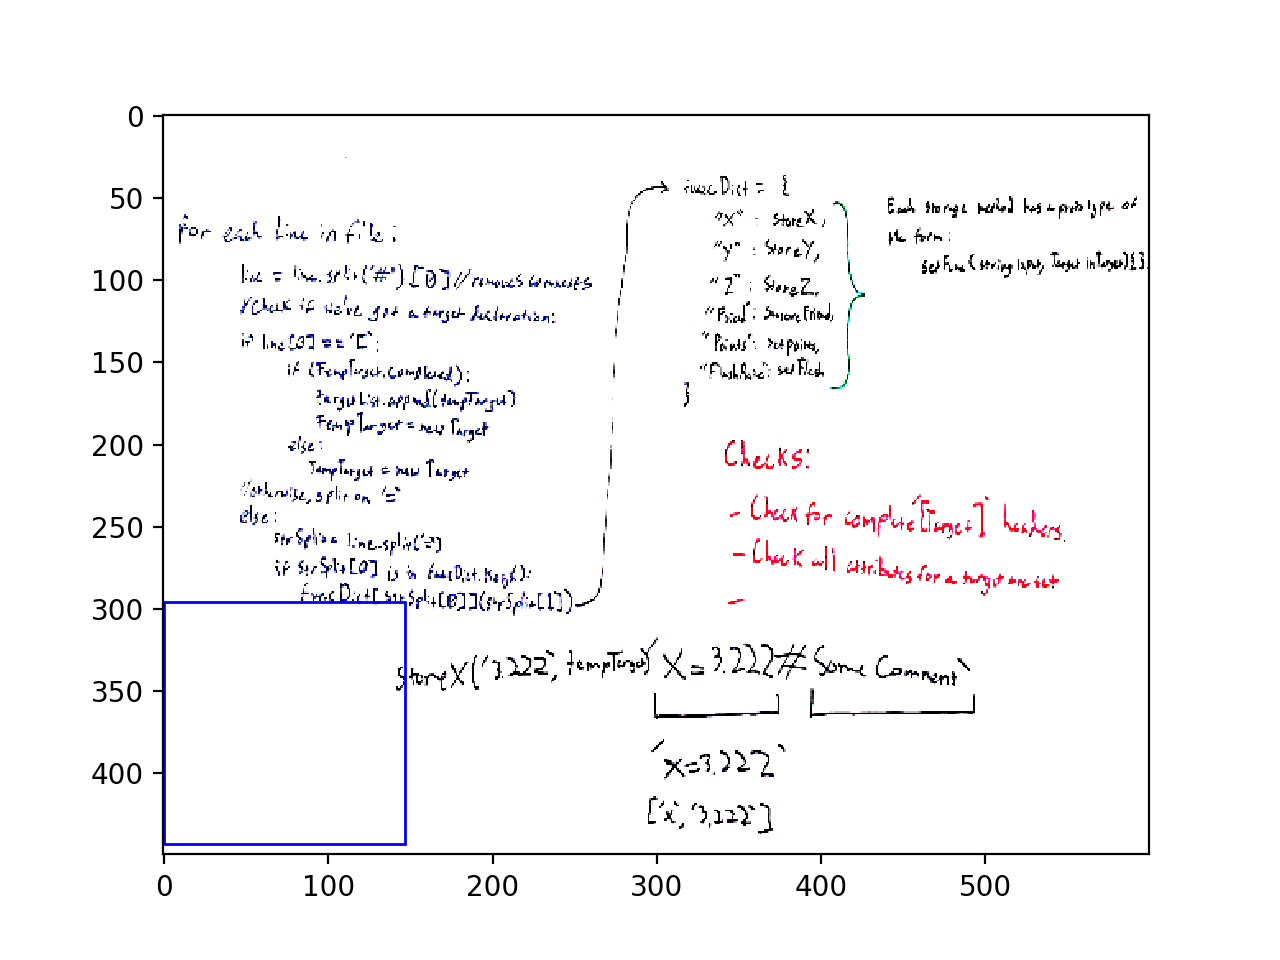 for each line in file:
line = line.split('#')[0] //removes comments
//Check if we've got a target declaration:
if line[0] == '[':
if (TempTarget.Completed):
targetList.append(tempTarget)
TempTarget = new Target
else:
TempTarget = new Target
//otherwise, split on '='
else:
strSplit = line.split('=')
if strSplit[0] is in funcDict.keys():
funcDict[strSplit[0]](strSplit[1])
funcDict = {
"X" : storeX,
"Y" : StoreY,
"Z" : StoreZ,
"Friend":
"Points": setpoints,
"FlashRate": setFlash
}
Each storage method has a prototype of
the form:
setFunc(string input, Target inTarget){}
Checks:
- Check for complete '[Target]' headers.
- Check all attributes for a target are set
-
StoreX('3.222', tempTarget)
'X=3.222#Some Comment'
'X=3.222'
['x', '3.222']
0
50
100
150
200
250
300
350
400
0 100 200 300 400 500